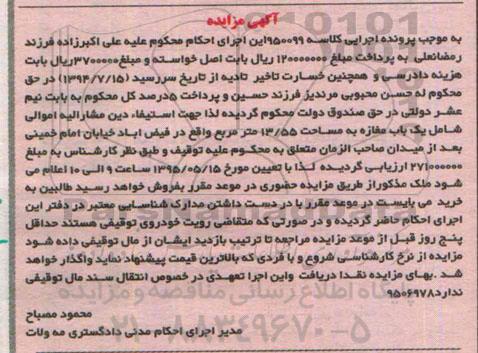 آگهی مزایده
به موجب پرونده اجرایی کلاسه ۹۵۰۰۹۹این اجرای احکام محکوم علیه علی اکبرزاده فرزند
رمضانعلی به پرداخت مبلغ ۱۲۰۰۰۰۰۰۰ ریال بابت اصل خواسته و مبلغ۳۷۰۰۰۰۰ریال بابت
هزینه دادرسی و همچنین خسارت تاخیر تادیه از تاریخ سررسید (۱۳۹۴/۷/۱۵) در حق
محکوم له حسن محبوبی مرندیز فرزند حسین و پرداخت ۵درصد کل محکوم به بابت نیم
عشر دولتی در حق صندوق دولت محکوم گردیده لذا جهت استیفاء دین مشارالیه اموالی
شامل یک باب مغازه به مساحت ۱۳/۵۵ متر مربع واقع در فیض اباد خیابان امام خمینی
بعد از میدان صاحب الزمان متعلق به محکوم علیه توقیف و طبق نظر کارشناس به مبلغ
۲۷۱۰۰۰۰۰۰ ارزیابی گردیده لذا با تعیین مورخ ۱۳۹۵/۰۵/۱۵ ساعت ۹ الی ۱۰ اعلام می
شود ملک مذکوراز طریق مزایده حضوری در موعد مقرر بفروش خواهد رسید طالبین به
خرید می بایست در موعد مقرر با در دست داشتن مدارک شناسایی معتبر در دفتر این
اجرای احکام حاضر گردیده و در صورتی که متقاضی رویت خودروی توقیفی هستند حداقل
پنج روز قبل از موعد مزایده مراجعه تا ترتیب بازدید ایشان از مال توقیفی داده شود
مزایده از نرخ کارشناسی شروع و با فردی که بالاترین قیمت پیشنهاد نماید واگذار خواهد
شد .بهای مزایده نقدا دریافت واین اجرا تعهدی در خصوص انتقال سند مال توقیفی
ندارد۹۵۰۶۹۷۸
محمود مصباح
مدیر اجرای احکام مدنی دادگستری مه ولات
پایگاه اطلاع رسانی مناقصه و مزایده
۰۲۱-۸۸۳۴۹۶۷۰-۵